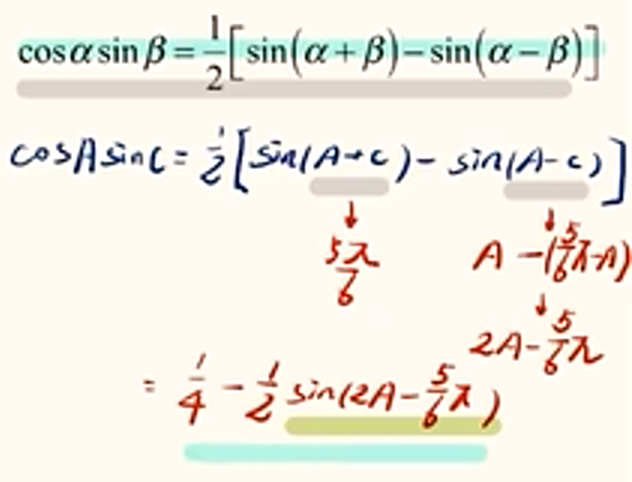 cosα sinβ = 1/2 [sin(α + β) − sin(α − β)]
cosA sinC = 1/2 [sin(A+C) − sin(A−C)]
↓ ↓
5π/6 A − (5/6π−A)
↓
2A − 5/6π
= 1/4 − 1/2 sin(2A − 5/6π)